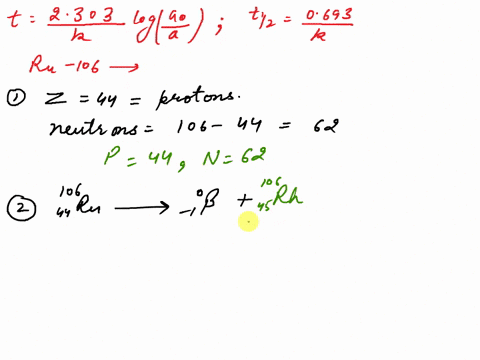 t = 2.303/k log(a0/a) ; t1/2 = 0.693/k
Ru-106 →
① Z = 44 = protons.
neutrons = 106 - 44 = 62
P = 44, N = 62
② ¹⁰⁶₄₄Ru → ⁰₋₁β + ¹⁰⁶₄₅Rh